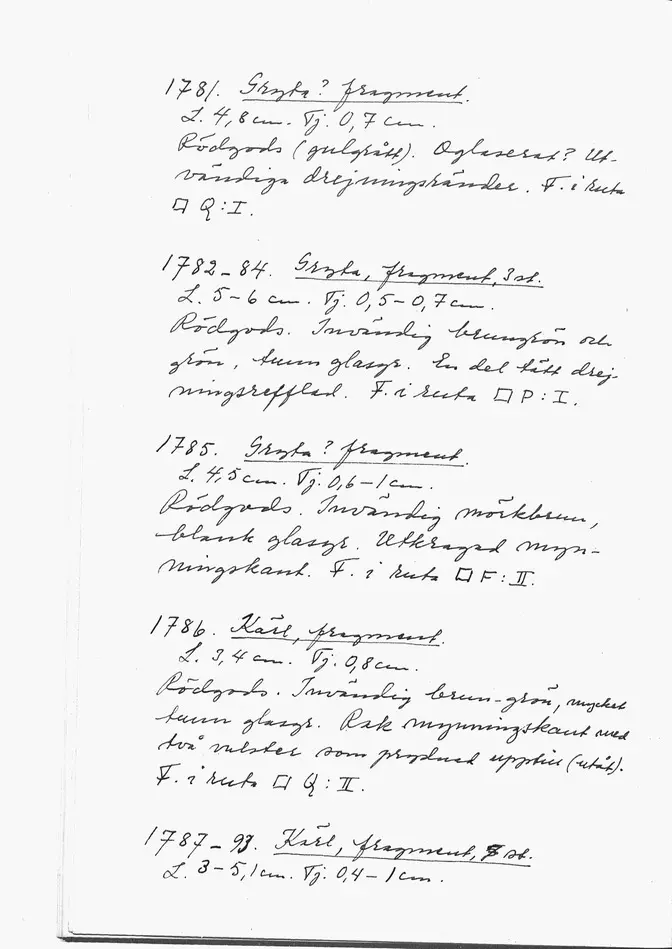 1781. Gryta? fragment.
L. 4,8 cm. Tj. 0,7 cm.
Rödgods (gulgrått). Oglaserat? Ut-
vändiga drejningsränder. F. i ruta
□ Q:I.
1782-84. Gryta, fragment, 3 st.
L. 5-6 cm. Tj. 0,5-0,7 cm.
Rödgods. Invändig brungrön och
grön, tunn glasyr. En del tätt drej-
ningsrefflad. F. i ruta □ P:I.
1785. Gryta? fragment.
L. 4,5 cm. Tj. 0,6-1 cm.
Rödgods. Invändig mörkbrun,
blank glasyr. Utkragad myn-
ningskant. F. i ruta □ F:II.
1786. Kärl, fragment.
L. 3,4 cm. Tj. 0,8 cm.
Rödgods. Invändig brun-grön, mycket
tunn glasyr. Rak mynningskant med
två vulster som prydnad upptill (utåt).
F. i ruta □ Q:II.
1787-93. Kärl, fragment, 7 st.
L. 3-5,1 cm. Tj. 0,4-1 cm.